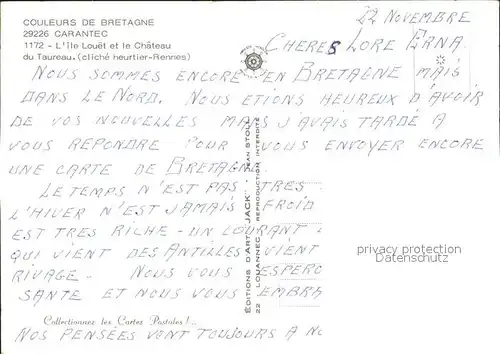 COULEURS DE BRETAGNE
29226 CARANTEC
1172 - L'île Louët et le Château
du Taureau. (cliché heurtier-Rennes)
22 NOVEMBRE
CHERES LORE ERNA
NOUS SOMMES ENCORE EN BRETAGNE MAIS
DANS LE NORD. NOUS ETIONS HEUREUX D'AVOIR
DE VOS NOUVELLES MAIS J'AVAIS TARDÉ A
VOUS REPONDRE POUR VOUS ENVOYER ENCORE
UNE CARTE DE BRETAGNE.
LE TEMPS N'EST PAS TRES
L'HIVER N'EST JAMAIS FROID
EST TRES RICHE - UN COURANT
QUI VIENT DES ANTILLES VIENT
RIVAGE. NOUS VOUS ESPERO
SANTE ET NOUS VOUS EMBRA
NOS PENSÉES VONT TOUJOURS A NO
Collectionnez les Cartes Postales !..
EDITIONS D'ART "JACK"
22 LOUANNEC REPRODUCTION INTERDITE
JEAN STOLL
privacy protection
Datenschutz